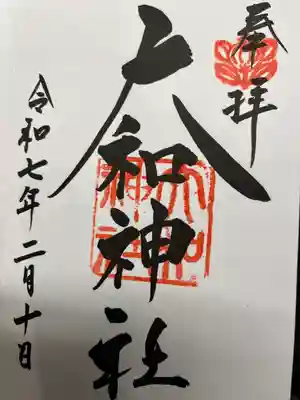 奉拝
大和神社
令和七年二月十日